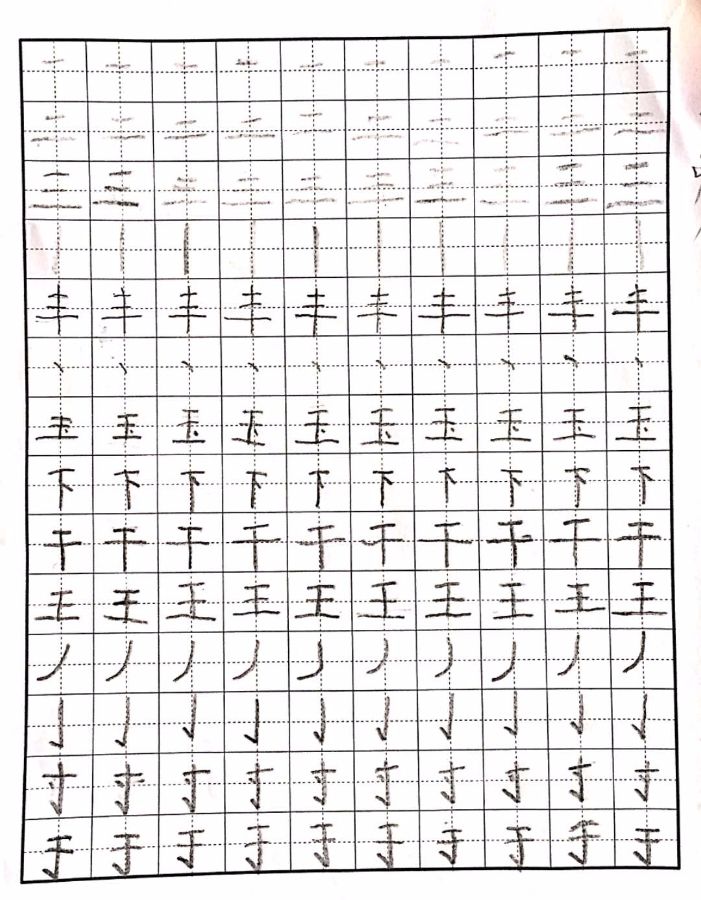 一 一 一 一 一 一 一 一 一 一
二 二 二 二 二 二 二 二 二 二
三 三 三 三 三 三 三 三 三 三
丨 丨 丨 丨 丨 丨 丨 丨 丨 丨
丰 丰 丰 丰 丰 丰 丰 丰 丰 丰
丶 丶 丶 丶 丶 丶 丶 丶 丶 丶
玉 玉 玉 玉 玉 玉 玉 玉 玉 玉
下 下 下 下 下 下 下 下 下 下
干 干 干 干 干 干 干 干 干 干
王 王 王 王 王 王 王 王 王 王
丿 丿 丿 丿 丿 丿 丿 丿 丿 丿
亅 亅 亅 亅 亅 亅 亅 亅 亅 亅
寸 寸 寸 寸 寸 寸 寸 寸 寸 寸
于 于 于 于 于 于 于 于 于 于